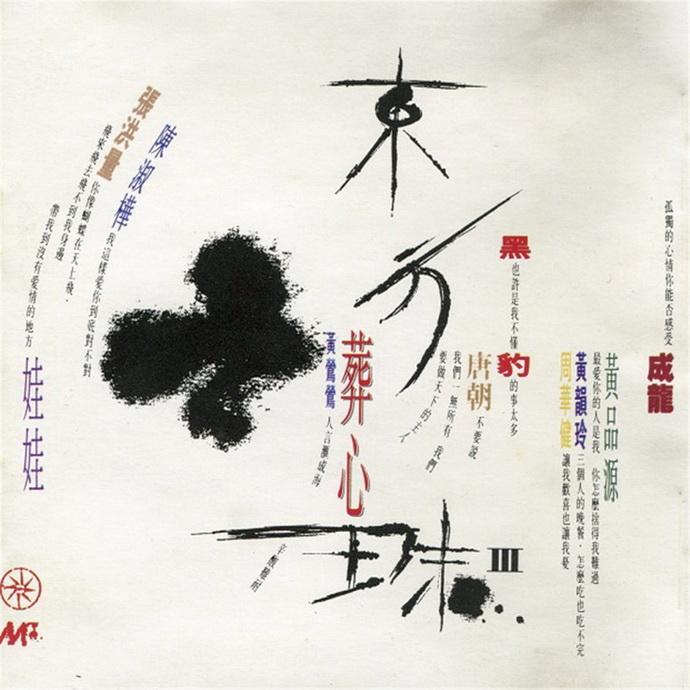 東方珠
III
孤獨的心情你能否感受
成龍
黃品源
最愛你的人是我 你怎麼捨得我難過
黃韻玲
三個人的晚餐．怎麼吃也吃不完
周華健
讓我歡喜也讓我憂
黑豹
也許是我不懂的事太多
唐朝
不要說
我們一無所有 我們
要做天下的主人
葬心
黃鶯鶯
人言匯成海
陳淑樺
我這樣愛你到底對不對
張洪量
你像蝴蝶在天上飛．
飛來飛去飛不到我身邊
帶我到沒有愛情的地方
娃娃